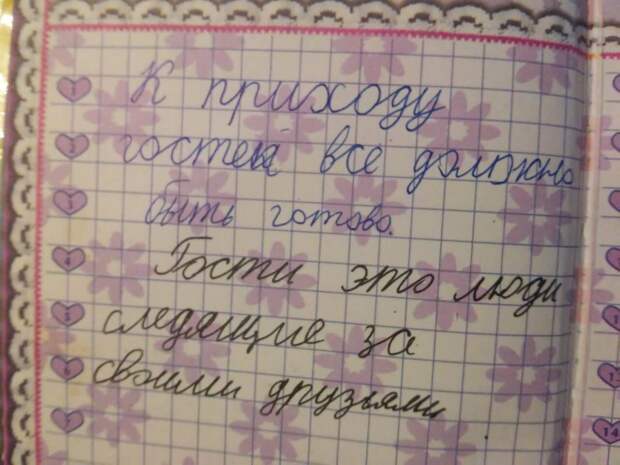 К приходу
гостей все должно
быть готово.
Гости это люди
следящие за
своими друзьями
1
2
3
4
5
6
7
14